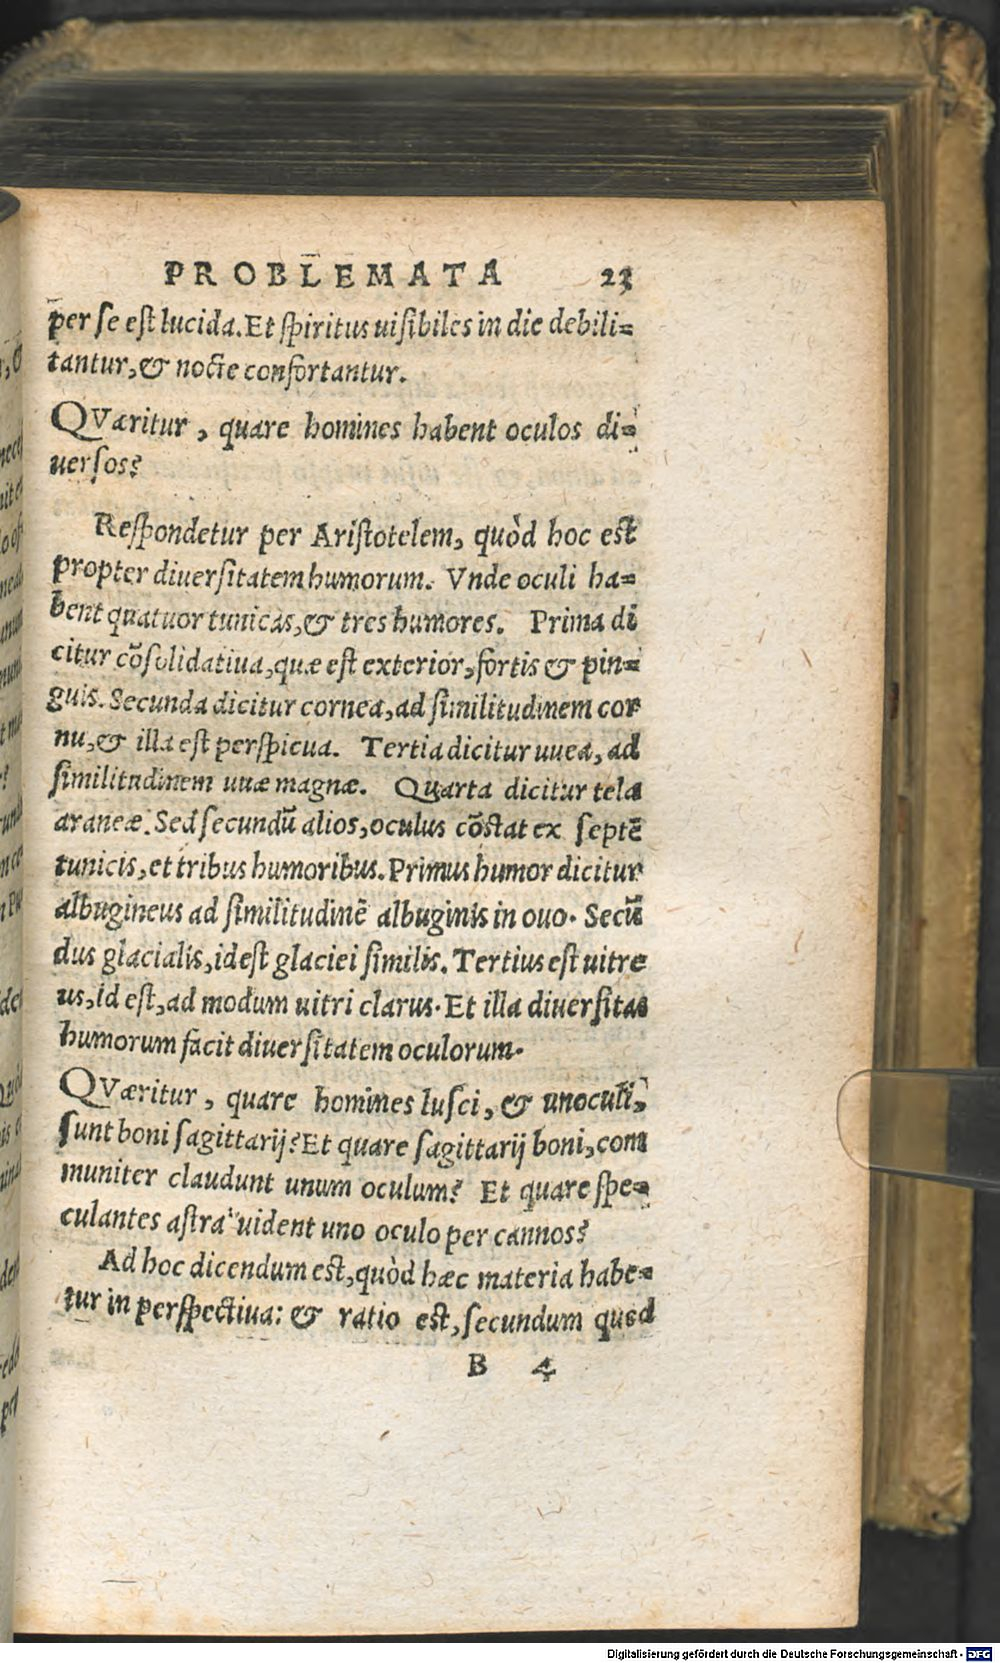 PROBLEMATA 23
per se est lucida. Et spiritus uisibiles in die debili-
tantur, & nocte confortantur.
QVæritur, quare homines habent oculos di-
uersos?
Respondetur per Aristotelem, quòd hoc est
propter diuersitatem humorum. Vnde oculi ha-
bent quatuor tunicas, & tres humores. Prima di
citur cõsolidatiua, quæ est exterior, fortis & pin-
guis. Secunda dicitur cornea, ad similitudinem cor
nu, & illa est perspicua. Tertia dicitur uuea, ad
similitudinem uuæ magnæ. Quarta dicitur tela
araneæ. Sed secundũ alios, oculus cõstat ex septẽ
tunicis, et tribus humoribus. Primus humor dicitur
albugineus ad similitudinẽ albuginis in ouo. Secũ
dus glacialis, idest glaciei similis. Tertius est uitre
us, id est, ad modum uitri clarus. Et illa diuersitas
humorum facit diuersitatem oculorum.
QVæritur, quare homines lusci, & unoculi,
sunt boni sagittarij? Et quare sagittarij boni, com
muniter claudunt unum oculum? Et quare spe-
culantes astra uident uno oculo per cannos?
Ad hoc dicendum est, quòd hæc materia habe-
tur in perspectiua: & ratio est, secundum quod
B 4
Digitalisierung gefördert durch die Deutsche Forschungsgemeinschaft - DFG